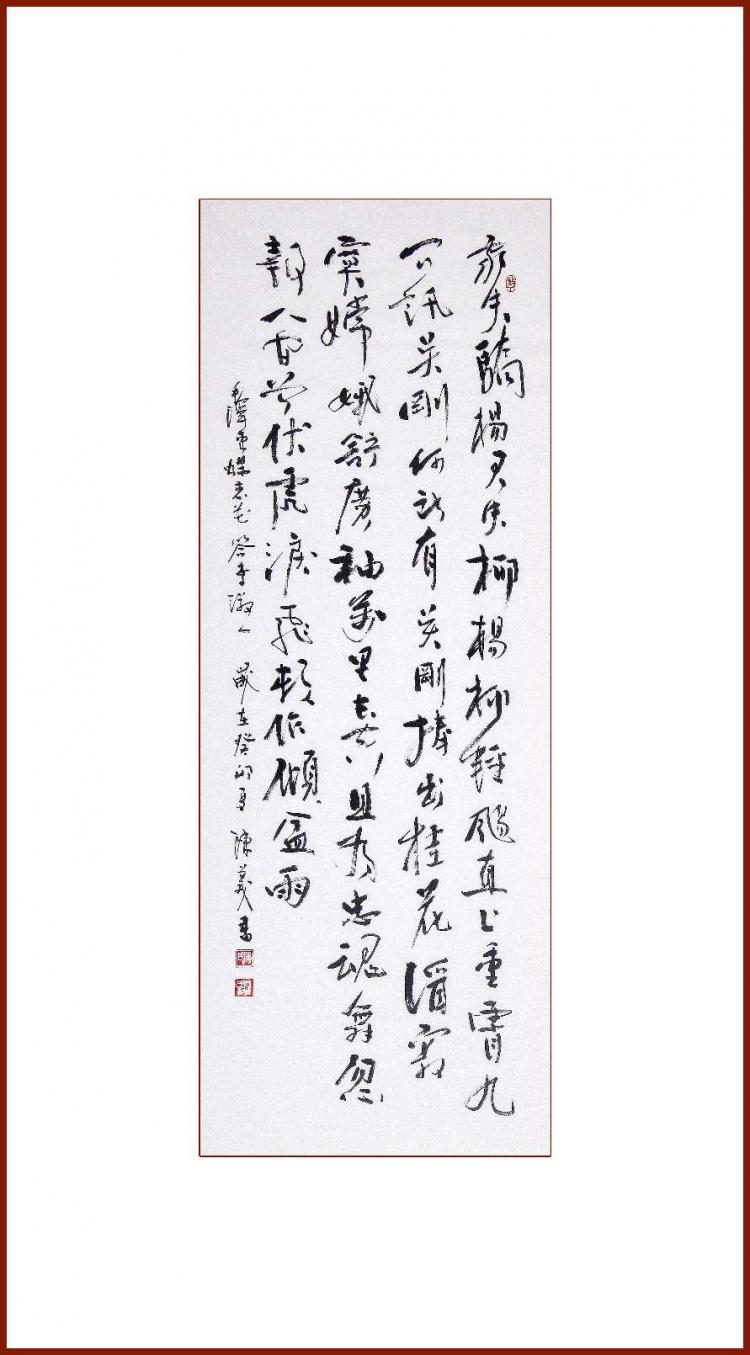 我失驕楊君失柳楊柳輕颺直上重霄九
問訊吳剛何所有吳剛捧出桂花酒寂
寞嫦娥舒廣袖萬里長空且為忠魂舞忽
報人間曾伏虎淚飛頓作傾盆雨
毛澤東蝶恋花答李淑一 歲在癸卯夏 陳義書